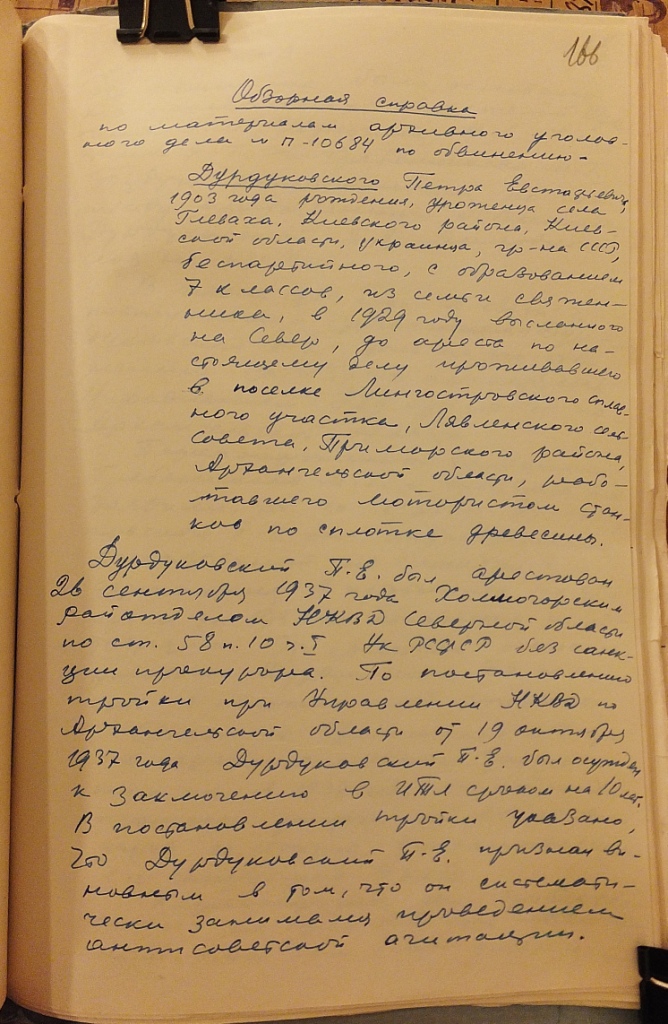 166
Обзорная справка
по материалам архивного уголов-
ного дела № П-10684 по обвинению -
Дурдуковского Петра Евстафиевича,
1903 года рождения, уроженца села
Глеваха, Киевского района, Киев-
ской области, украинца, гр-на СССР,
беспартийного, с образованием
7 классов, из семьи священ-
ника, в 1929 году высланного
на Север, до ареста по на-
стоящему делу проживавшего
в поселке Лингостровского сплав-
ного участка, Лявленского сель-
совета, Приморского района,
Архангельской области, рабо-
тавшего мотористом стан-
ков по сплотке древесины.
Дурдуковский П.Е. был арестован
26 сентября 1937 года Холмогорским
райотделом НКВД Северной области
по ст. 58 п. 10 ч. I УК РСФСР без санк-
ции прокурора. По постановлению
тройки при Управлении НКВД по
Архангельской области от 19 октября
1937 года Дурдуковский П.Е. был осужден
к заключению в ИТЛ сроком на 10 лет.
В постановлении тройки указано,
что Дурдуковский П.Е. признан ви-
новным в том, что он системати-
чески занимался проведением
антисоветской агитации.